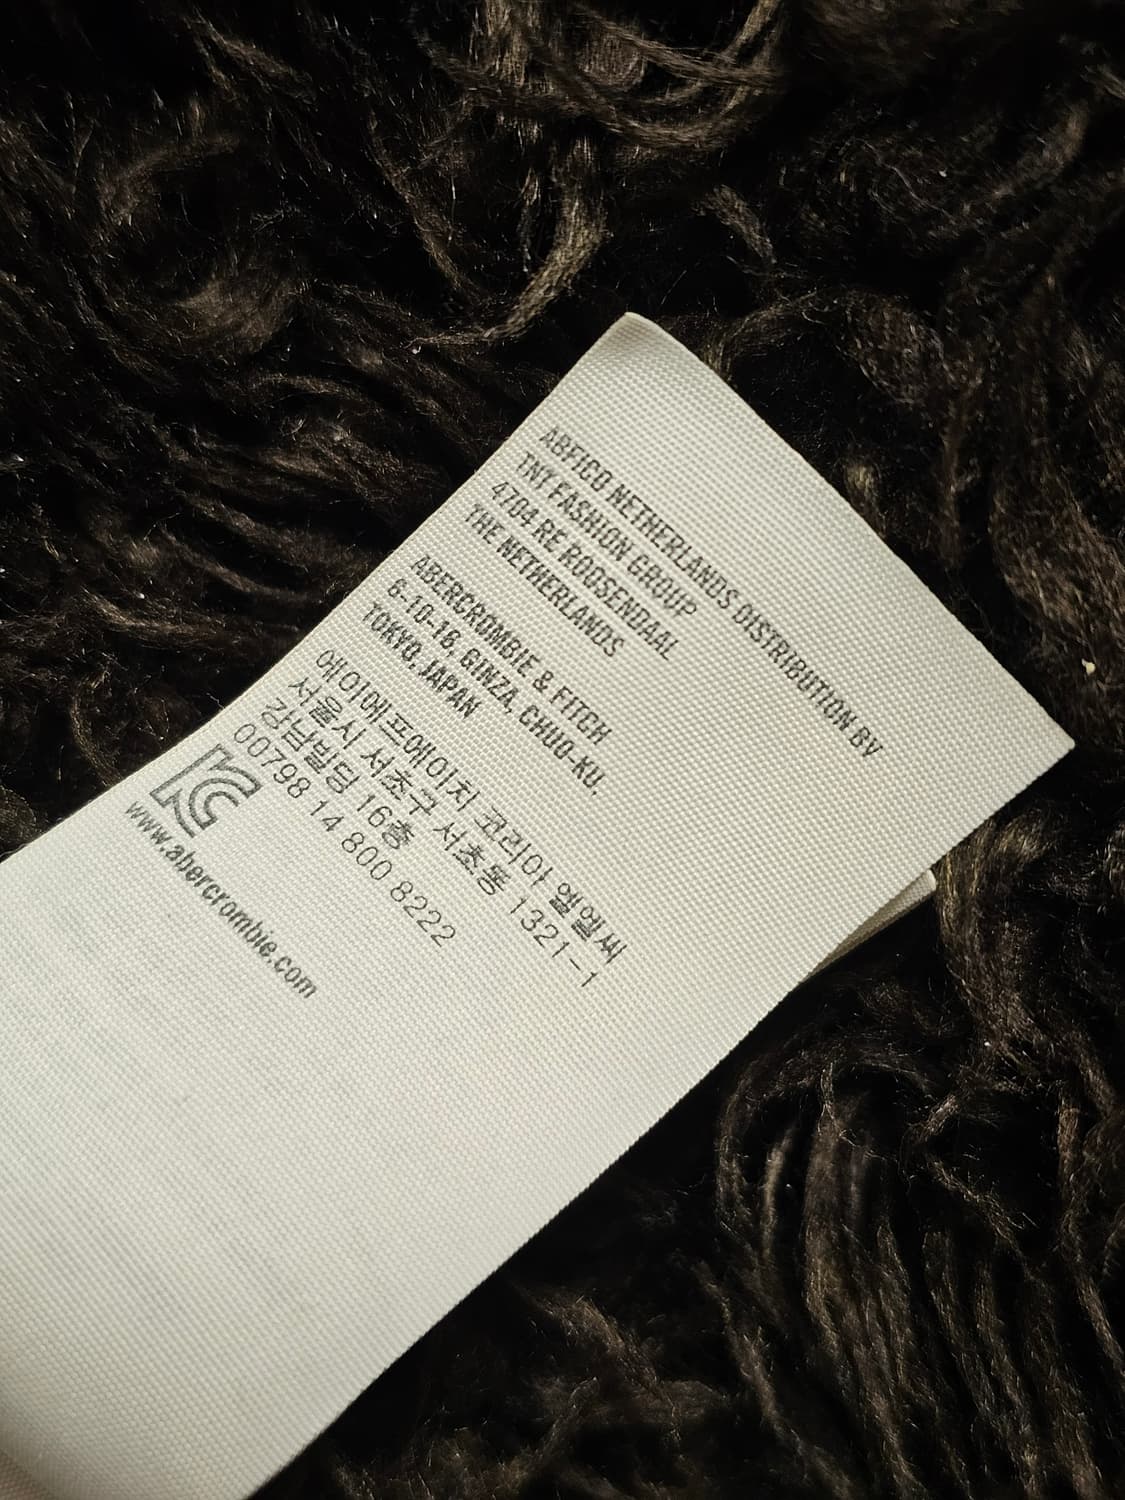 ABFICO NETHERLANDS DISTRIBUTION BV
TNT FASHION GROUP
4704 RE ROOSENDAAL
THE NETHERLANDS
ABERCROMBIE & FITCH
6-10-16, GINZA, CHUO-KU,
TOKYO, JAPAN
에이에프에이치 코리아 엘엘씨
서울시 서초구 서초동 1321-1
강남빌딩 16층
00798 14 800 8222
www.abercrombie.com